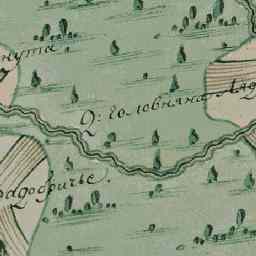 нута
Д: Головняна Ляд
радобричье.